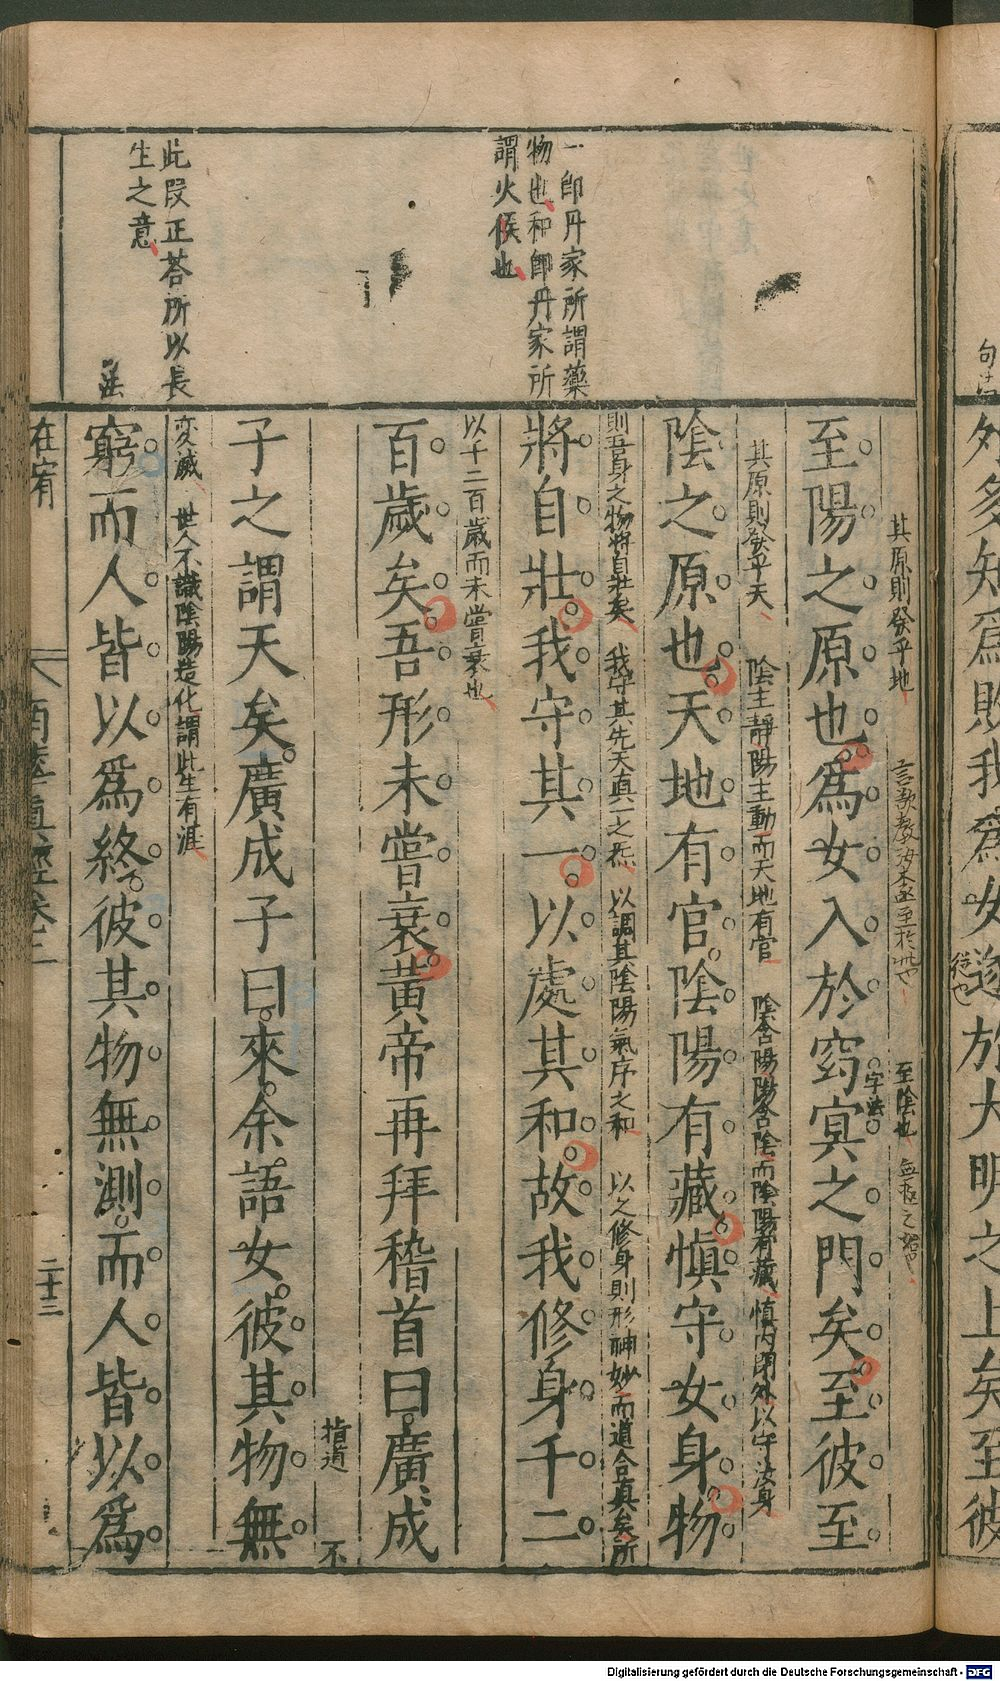 句法
外多知為敗我為女遂於大明之上矣至彼
從也
一即丹家所謂藥
物也和即丹家所
謂火候也
此段正荅所以長
生之意
其原則發乎地
至陰也
至陽之原也為女入於窈冥之門矣至彼至
字法
其原則發乎天 陰主靜陽主動而天地有官 陰含陽陽含陰而陰陽有藏 慎內閉外以守汝身
陰之原也天地有官陰陽有藏慎守女身物
則吾身之物將自壯矣 我守其先天真一之炁 以調其陰陽氣序之和 以之修身則形神妙而道合真矣所
將自壯我守其一以處其和故我修身千二
以千二百歲而未嘗衰也
百歲矣吾形未嘗衰黃帝再拜稽首曰廣成
指道 不
子之謂天矣廣成子曰來余語女彼其物無
変滅 世人不識陰陽造化謂此生有涯
窮而人皆以為終彼其物無測而人皆以為
在宥
南華真經卷三
二十三
Digitalisierung gefördert durch die Deutsche Forschungsgemeinschaft - DFG